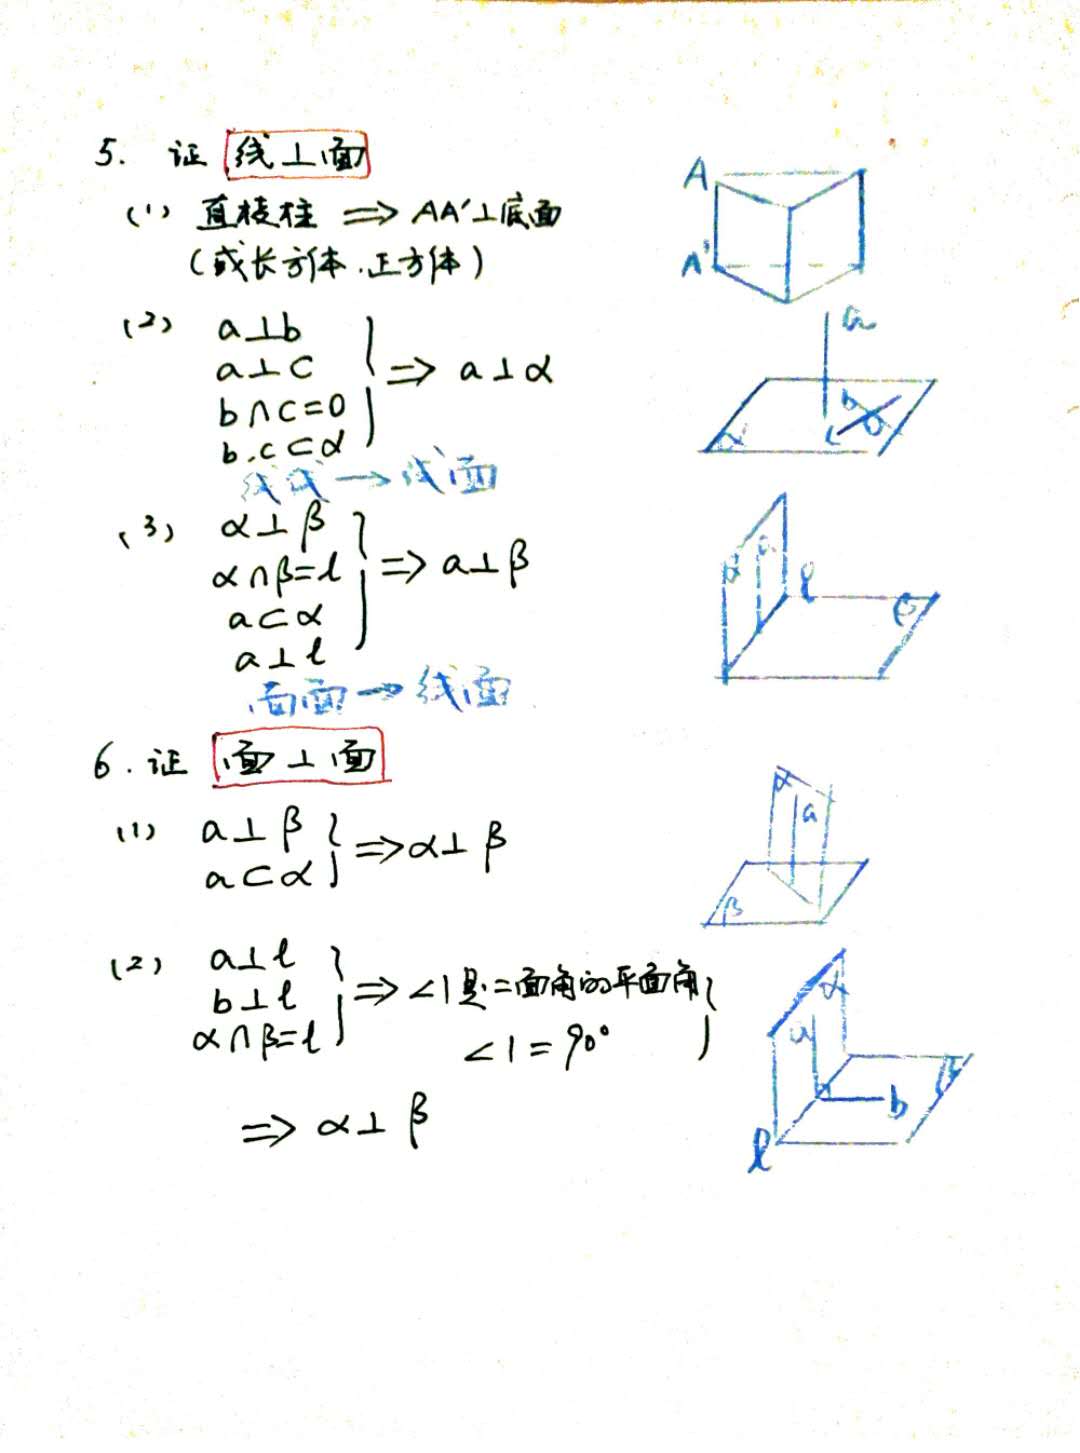 5. 证 线⊥面
(1) 直棱柱 ⟹ AA'⊥底面
(或长方体.正方体)
A
A'
(2) a⊥b
a⊥c
b∩c=0
b.c⊂α
⟹ a⊥α
a
b
c
α
线线→线面
(3) α⊥β
α∩β=l
a⊂α
a⊥l
⟹ a⊥β
α
a
l
β
面面→线面
6. 证 面⊥面
(1) a⊥β
a⊂α
⟹ α⊥β
α
a
β
(2) a⊥l
b⊥l
α∩β=l
⟹ ∠1是二面角的平面角
∠1=90°
⟹ α⊥β
α
a
b
l